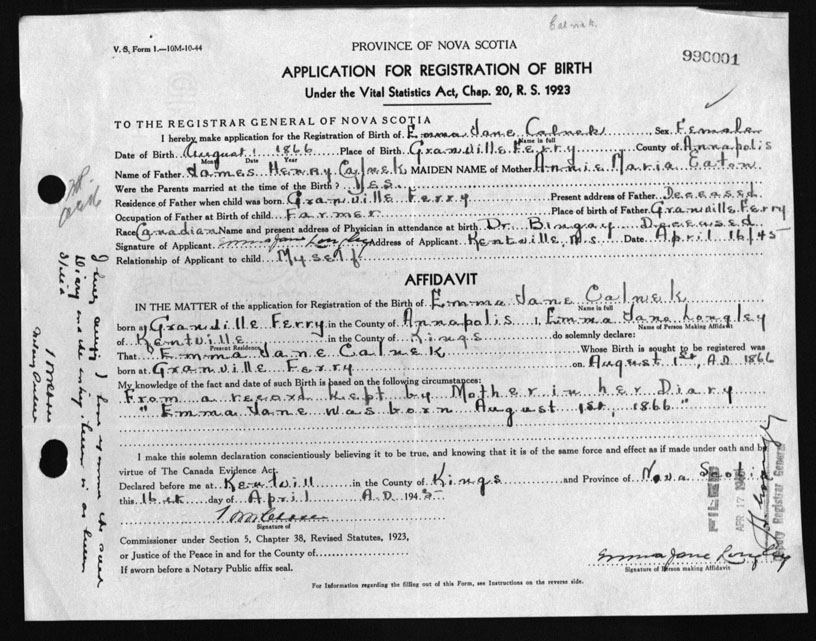 Calnek.
V. S. Form 1.—10M-10-44
PROVINCE OF NOVA SCOTIA
990001
APPLICATION FOR REGISTRATION OF BIRTH
Under the Vital Statistics Act, Chap. 20, R. S. 1923
TO THE REGISTRAR GENERAL OF NOVA SCOTIA
I hereby make application for the Registration of Birth of Emma Jane Calnek Sex Female
Name in full
Date of Birth August 1 1866 Place of Birth Granville Ferry County of Annapolis
Month Date Year
Name of Father James Henry Calnek MAIDEN NAME of Mother Annie Maria Eaton
Were the Parents married at the time of the Birth? Yes.
Residence of Father when child was born. Granville Ferry Present address of Father Deceased
Occupation of Father at Birth of child. Farmer Place of birth of Father Granville Ferry
Race Canadian Name and present address of Physician in attendance at birth Dr. Bingay Deceased
Signature of Applicant Emma Jane Longley Address of Applicant Kentville, N.S. Date April 16/45
Relationship of Applicant to child Myself
AFFIDAVIT
IN THE MATTER of the application for Registration of the Birth of Emma Jane Calnek
Name in full
born at Granville Ferry in the County of Annapolis I, Emma Jane Longley
Name of Person Making Affidavit
of Kentville in the County of Kings do solemnly declare:
Present Residence
That Emma Jane Calnek Whose Birth is sought to be registered was
born at Granville Ferry on August 1st, A.D. 1866
My knowledge of the fact and date of such Birth is based on the following circumstances:
From a record kept by Mother in her Diary
"Emma Jane was born August 1st, 1866"
I make this solemn declaration conscientiously believing it to be true, and knowing that it is of the same force and effect as if made under oath and by
virtue of The Canada Evidence Act.
Declared before me at Kentvill in the County of Kings and Province of Nova Scoti
this 16th day of April A.D. 1945
Signature of
Commissioner under Section 5, Chapter 38, Revised Statutes, 1923,
or Justice of the Peace in and for the County of
If sworn before a Notary Public affix seal.
Emma Jane Longley
Signature of Person making Affidavit
For Information regarding the filling out of this Form, see Instructions on the reverse side.
FILED
APR 17 1945
Deputy Registrar General
Notary Public